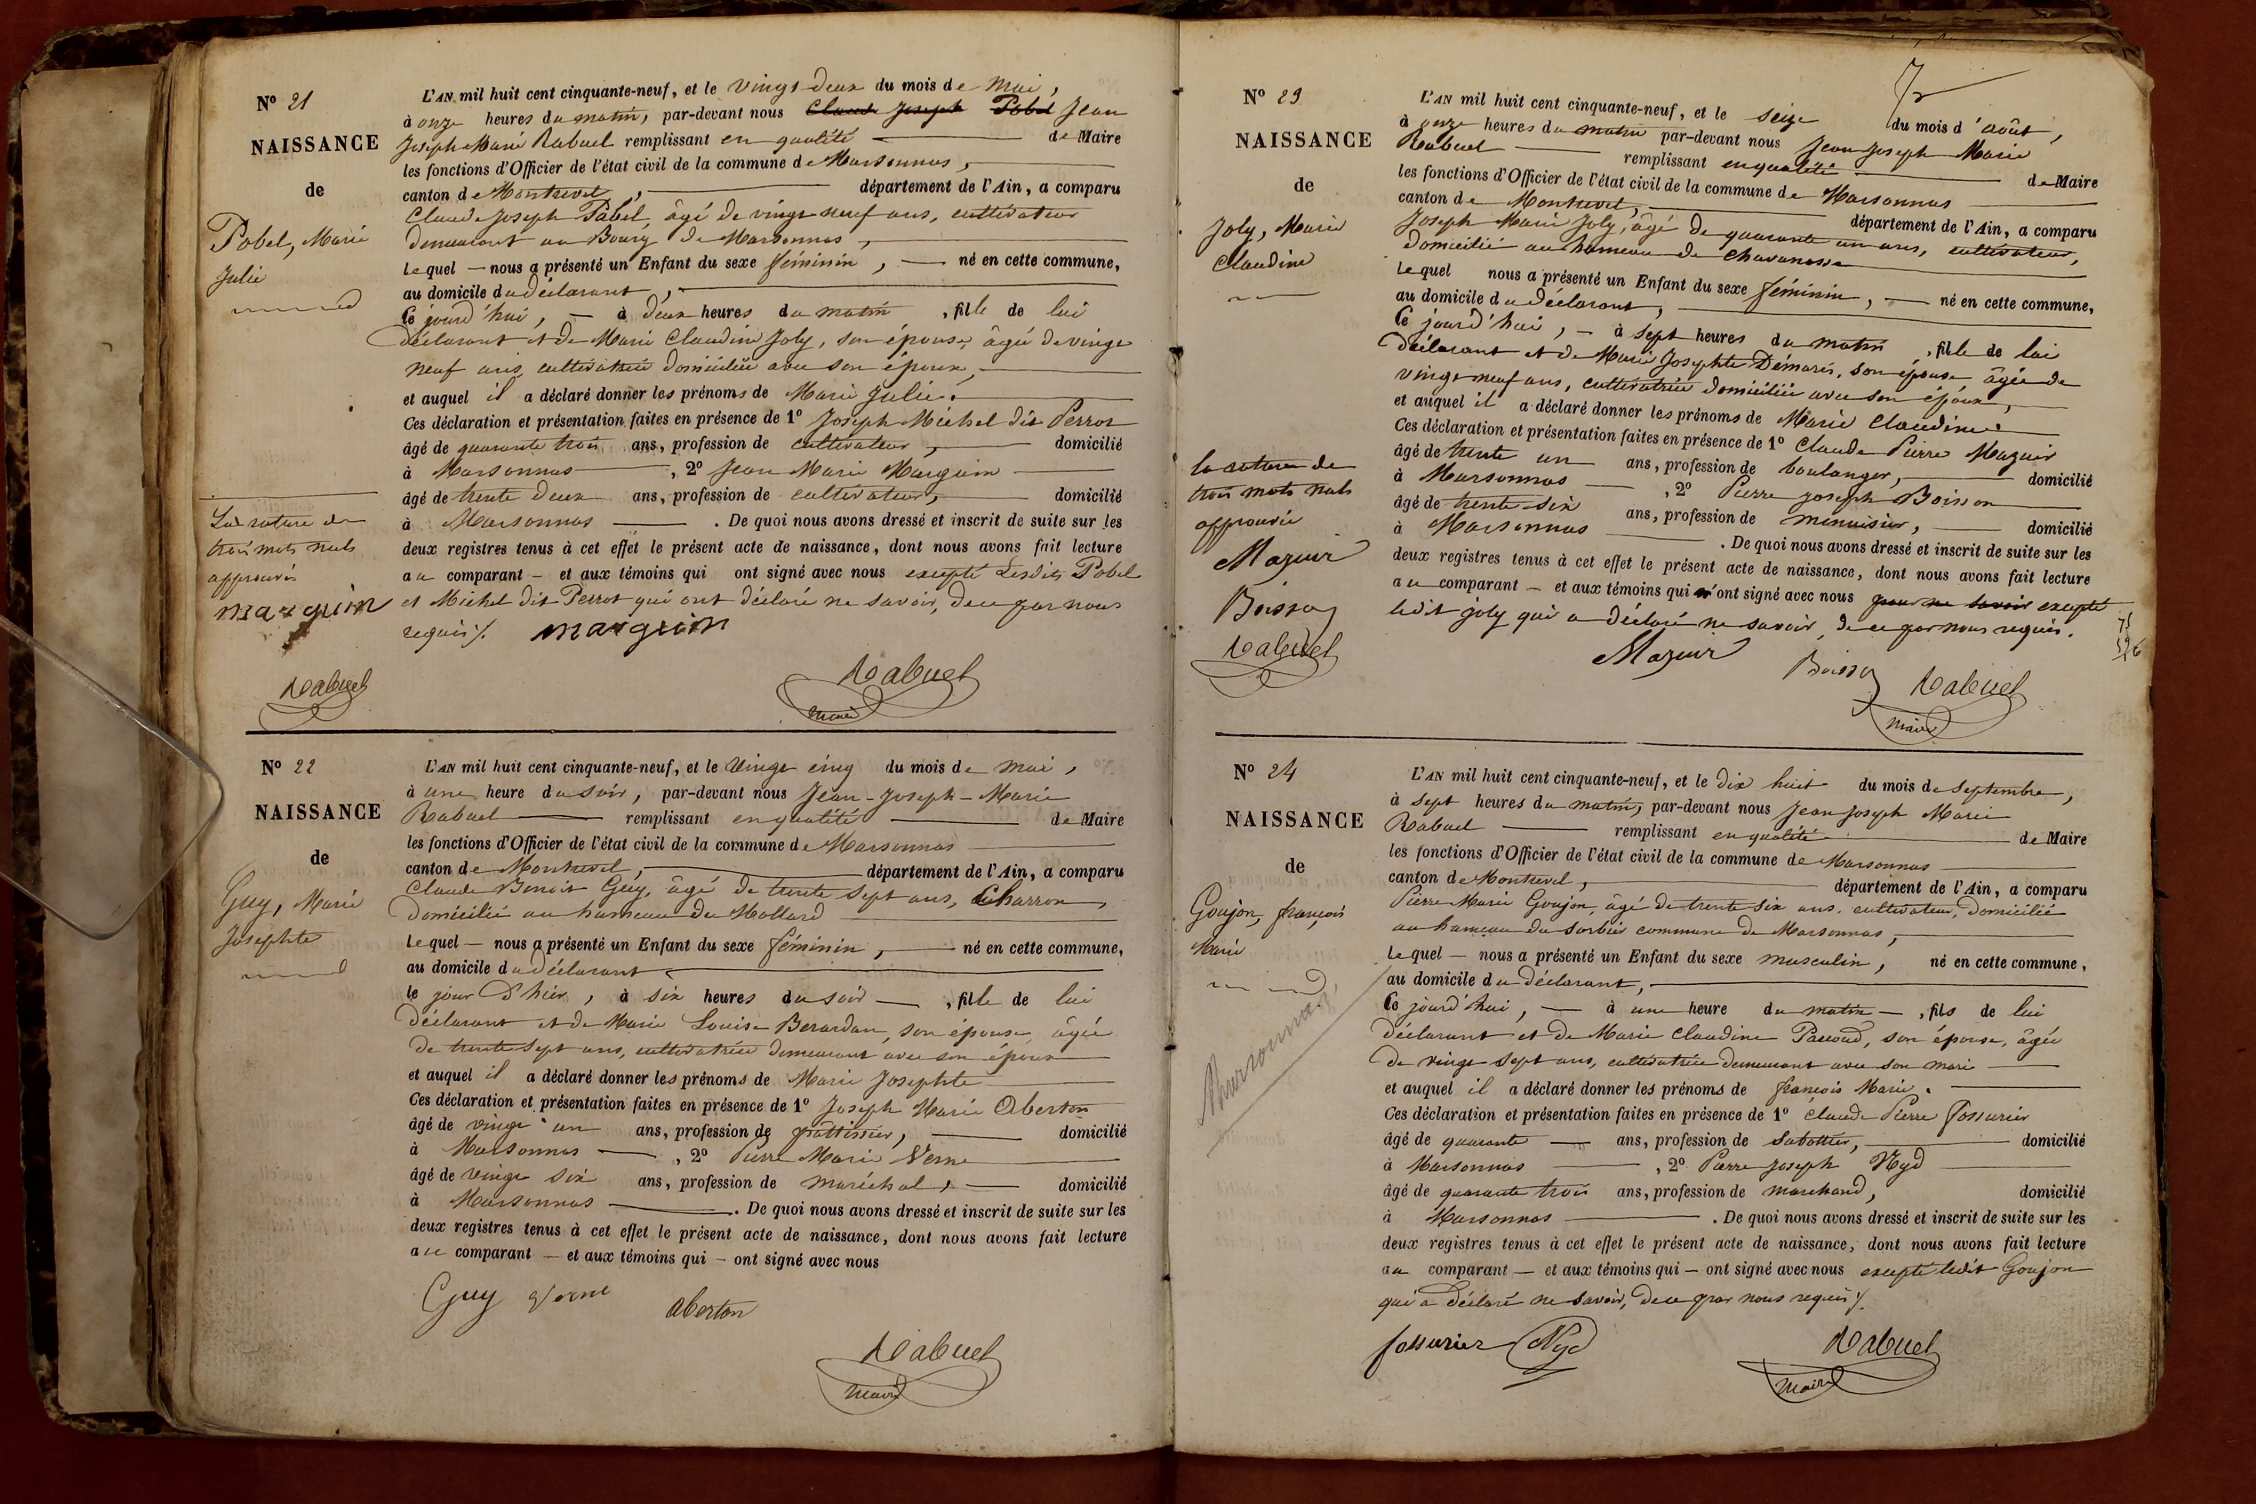 N° 21
NAISSANCE
de
Pobel, Marie
Julie
La rature de
trois mots nuls
approuvés
marguin
Rabuel
L'AN mil huit cent cinquante-neuf, et le vingt deux du mois de Mai,
à onze heures du matin, par-devant nous Claude Joseph Pobel Jean
Joseph Marie Rabuel remplissant en qualité de Maire
les fonctions d'Officier de l'état civil de la commune de Marsonnas,
canton de Montrevel, département de l'Ain, a comparu
Claude Joseph Pobel, âgé de vingt neuf ans, cultivateur
demeurant au Bourg de Marsonnas,
lequel nous a présenté un Enfant du sexe féminin, né en cette commune,
au domicile du déclarant,
Ce jourd'hui, à deux heures du matin, fille de lui
déclarant et de Marie Claudine Joly, son épouse, âgée de vingt
neuf ans, cultivatrice domiciliée avec son époux,
et auquel il a déclaré donner les prénoms de Marie Julie.
Ces déclaration et présentation faites en présence de 1° Joseph Michel dit Perrot
âgé de quarante trois ans, profession de cultivateur, domicilié
à Marsonnas, 2° Jean Marie Marguin
âgé de trente deux ans, profession de cultivateur, domicilié
à Marsonnas. De quoi nous avons dressé et inscrit de suite sur les
deux registres tenus à cet effet le présent acte de naissance, dont nous avons fait lecture
au comparant et aux témoins qui ont signé avec nous excepté lesdits Pobel
et Michel dit Perrot qui ont déclaré ne savoir, de ce par nous
requis/. marguin
Rabuel
maire
N° 22
NAISSANCE
de
Guy, Marie
Josephte
L'AN mil huit cent cinquante-neuf, et le vingt cinq du mois de mai,
à une heure du soir, par-devant nous Jean-Joseph-Marie
Rabuel remplissant en qualité de Maire
les fonctions d'Officier de l'état civil de la commune de Marsonnas
canton de Montrevel, département de l'Ain, a comparu
Claude Benoit Guy, âgé de trente sept ans, Charron,
domicilié au hameau du Mollard
lequel nous a présenté un Enfant du sexe féminin, né en cette commune,
au domicile du déclarant
le jour d'hier, à six heures du soir, fille de lui
déclarant et de Marie Louise Berardan, son épouse, âgée
de trente sept ans, cultivatrice demeurant avec son époux
et auquel il a déclaré donner les prénoms de Marie Josephte
Ces déclaration et présentation faites en présence de 1° Joseph Marie Aberton
âgé de vingt un ans, profession de pâttissier, domicilié
à Marsonnas, 2° Pierre Marie Verne
âgé de vingt six ans, profession de maréchal, domicilié
à Marsonnas. De quoi nous avons dressé et inscrit de suite sur les
deux registres tenus à cet effet le présent acte de naissance, dont nous avons fait lecture
au comparant et aux témoins qui ont signé avec nous
Guy Verne aberton
Rabuel
maire
N° 23
NAISSANCE
de
Joly, Marie
Claudine
la rature de
trois mots nuls
approuvée
Mazuir
Boisson
Rabuel
L'AN mil huit cent cinquante-neuf, et le seize du mois d'août,
à onze heures du matin par-devant nous Jean Joseph Marie
Rabuel remplissant en qualité de Maire
les fonctions d'Officier de l'état civil de la commune de Marsonnas
canton de Montrevel, département de l'Ain, a comparu
Joseph Marie Joly, âgé de quarante un ans, cultivateur,
domicilié au hameau de Chavanosse
lequel nous a présenté un Enfant du sexe féminin, né en cette commune,
au domicile du déclarant,
Ce jourd'hui, à sept heures du matin, fille de lui
déclarant et de Marie Josephte Démaris, son épouse âgée de
vingt neuf ans, cultivatrice domiciliée avec son époux,
et auquel il a déclaré donner les prénoms de Marie Claudine.
Ces déclaration et présentation faites en présence de 1° Claude Pierre Mazuir
âgé de trente un ans, profession de boulanger, domicilié
à Marsonnas, 2° Pierre Joseph Boisson
âgé de trente six ans, profession de menuisier, domicilié
à Marsonnas. De quoi nous avons dressé et inscrit de suite sur les
deux registres tenus à cet effet le présent acte de naissance, dont nous avons fait lecture
au comparant et aux témoins qui n'ont signé avec nous pour ne savoir excepté
ledit Joly qui a déclaré ne savoir, de ce par nous requis.
Mazuir Boisson Rabuel
maire
N° 24
NAISSANCE
de
Goujon, françois
Marie
Marsonnas
L'AN mil huit cent cinquante-neuf, et le dix huit du mois de septembre,
à sept heures du matin, par-devant nous Jean Joseph Marie
Rabuel remplissant en qualité de Maire
les fonctions d'Officier de l'état civil de la commune de Marsonnas
canton de Montrevel, département de l'Ain, a comparu
Pierre Marie Goujon, âgé de trente six ans, cultivateur, domicilié
au hameau du sorbier commune de Marsonnas,
lequel nous a présenté un Enfant du sexe masculin, né en cette commune,
au domicile du déclarant,
Ce jourd'hui, à une heure du matin, fils de lui
déclarant et de Marie Claudine Pacoud, son épouse, âgée
de vingt sept ans, cultivatrice demeurant avec son mari
et auquel il a déclaré donner les prénoms de françois Marie.
Ces déclaration et présentation faites en présence de 1° Claude Pierre fossurier
âgé de quarante ans, profession de sabottier, domicilié
à Marsonnas, 2° Pierre Joseph Nyd
âgé de quarante trois ans, profession de marchand, domicilié
à Marsonnas. De quoi nous avons dressé et inscrit de suite sur les
deux registres tenus à cet effet le présent acte de naissance, dont nous avons fait lecture
au comparant et aux témoins qui ont signé avec nous excepté ledit Goujon
qui a déclaré ne savoir, de ce par nous requis/.
fossurier Nyd Rabuel
maire